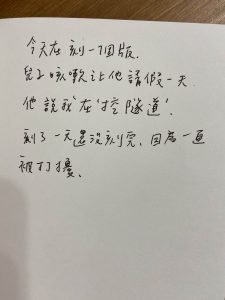 今天在刻一個版.
兒子咳嗽让他請假一天.
他說我在'挖隧道'.
刻了一天還沒刻完、因為一直
被打擾、